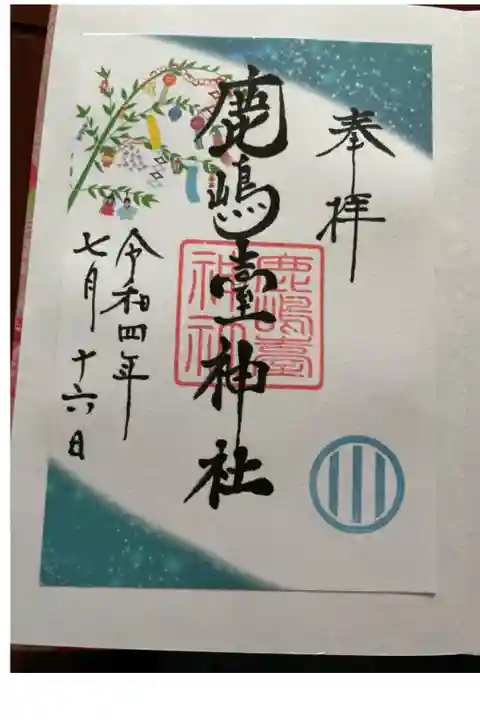 奉拝
鹿嶋臺神社
鹿嶋臺
神社
令和四年
七月十六日